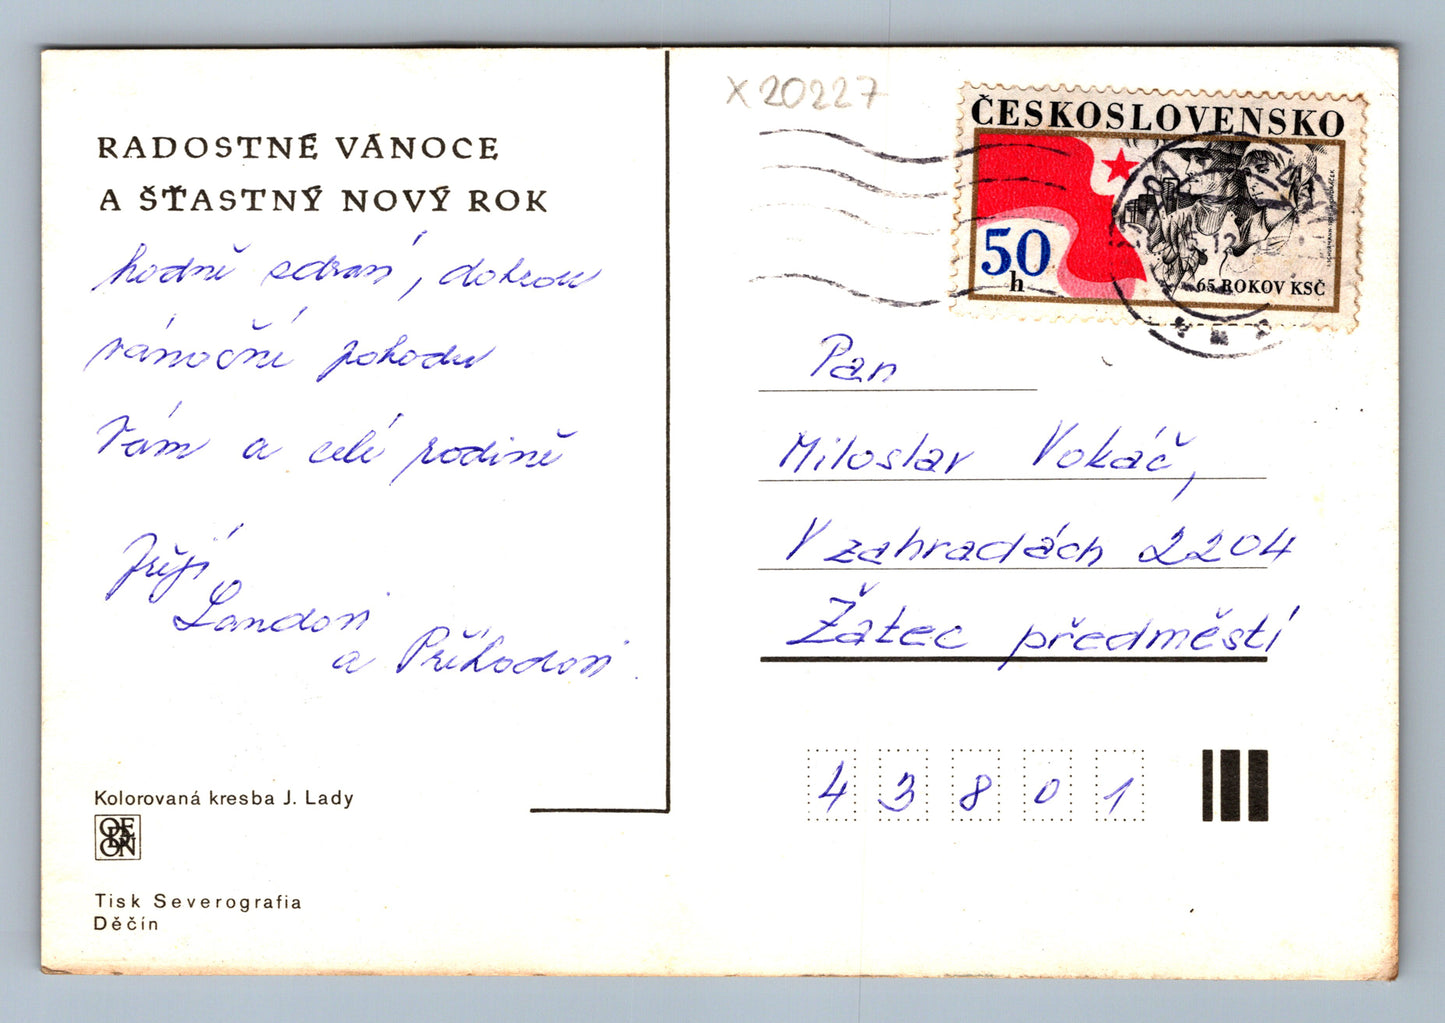 RADOSTNÉ VÁNOCE
A ŠŤASTNÝ NOVÝ ROK
hodně zdraví, dobrou
vánoční pohodu
Vám a celé rodině
přejí
Landovi
a Příhodovi.
Kolorovaná kresba J. Lady
Tisk Severografia
Děčín
X 20227
ČESKOSLOVENSKO
50
h
65 ROKOV KSČ
Pan
Miloslav Vokáč,
V zahradách 2204
Žatec předměstí
43801